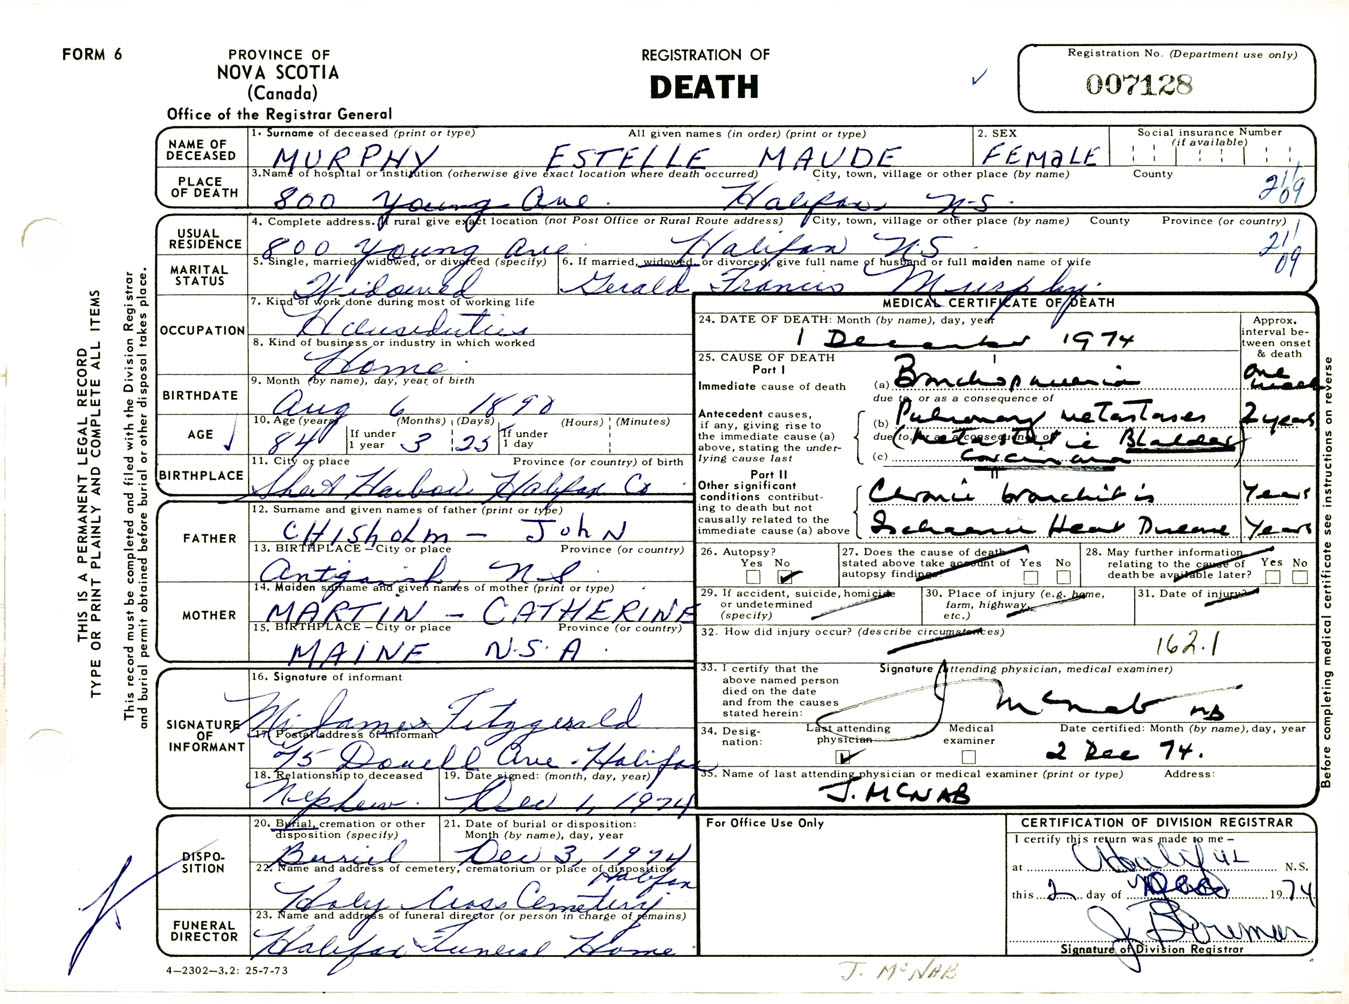 FORM 6
PROVINCE OF
NOVA SCOTIA
(Canada)
Office of the Registrar General
REGISTRATION OF
DEATH
Registration No. (Department use only)
007128
NAME OF DECEASED
1. Surname of deceased (print or type) All given names (in order) (print or type)
MURPHY ESTELLE MAUDE
2. SEX
FEMALE
Social insurance Number (if available)
PLACE OF DEATH
3. Name of hospital or institution (otherwise give exact location where death occurred) City, town, village or other place (by name) County
800 Young Ave. Halifax N.S.
21/09
USUAL RESIDENCE
4. Complete address. If rural give exact location (not Post Office or Rural Route address) City, town, village or other place (by name) County Province (or country)
800 Young Ave. Halifax N.S.
21/09
MARITAL STATUS
5. Single, married, widowed, or divorced (specify)
Widowed
6. If married, widowed, or divorced, give full name of husband or full maiden name of wife
Gerald Francis Murphy.
OCCUPATION
7. Kind of work done during most of working life
Houseduties
8. Kind of business or industry in which worked
Home.
BIRTHDATE
9. Month (by name), day, year of birth
Aug 6 1890
AGE
10. Age (years) (Months) (Days) (Hours) (Minutes)
84 If under 1 year 3 25 If under 1 day
BIRTHPLACE
11. City or place Province (or country) of birth
Sheet Harbour Halifax Co
FATHER
12. Surname and given names of father (print or type)
CHISHOLM - JOHN
13. BIRTHPLACE - City or place Province (or country)
Antigonish N.S.
MOTHER
14. Maiden surname and given names of mother (print or type)
MARTIN - CATHERINE
15. BIRTHPLACE - City or place Province (or country)
MAINE U.S.A.
SIGNATURE OF INFORMANT
16. Signature of informant
Mr. James Fitzgerald
17. Postal address of informant
75 Ave. Halifax
18. Relationship to deceased
Nephew.
19. Date signed: (month, day, year)
Dec 1, 1974
DISPOSITION
20. Burial, cremation or other disposition (specify)
Burial
21. Date of burial or disposition: Month (by name), day, year
Dec 3, 1974
22. Name and address of cemetery, crematorium or place of disposition
Holy Cross Cemetery Halifax
FUNERAL DIRECTOR
23. Name and address of funeral director (or person in charge of remains)
Halifax Funeral Home
4-2302-3.2: 25-7-73
MEDICAL CERTIFICATE OF DEATH
24. DATE OF DEATH: Month (by name), day, year
1 December 1974
Approx. interval between onset & death
25. CAUSE OF DEATH
Part I
I
Immediate cause of death
(a) Bronchopneumonia one week
due to, or as a consequence of
Antecedent causes, if any, giving rise to the immediate cause (a) above, stating the underlying cause last
(b) Pulmonary metastases 2 years
due to, or as a consequence of
(Metastatic Bladder
(c) Carcinoma)
Part II
II
Other significant conditions contributing to death but not causally related to the immediate cause (a) above
Chronic bronchitis Years
Ischaemic Heart Disease Years
26. Autopsy?
Yes No
27. Does the cause of death stated above take account of autopsy findings?
Yes No
28. May further information relating to the cause of death be available later?
Yes No
29. If accident, suicide, homicide or undetermined (specify)
30. Place of injury (e.g. home, farm, highway, etc.)
31. Date of injury?
32. How did injury occur? (describe circumstances)
162.1
33. I certify that the above named person died on the date and from the causes stated herein:
Signature (attending physician, medical examiner)
J McNab MB
34. Designation:
Last attending physician
Medical examiner
Date certified: Month (by name), day, year
2 Dec 74.
35. Name of last attending physician or medical examiner (print or type) Address:
J. MCNAB
For Office Use Only
CERTIFICATION OF DIVISION REGISTRAR
I certify this return was made to me -
at Halifax N.S.
this 2 day of Dec 1974
Signature of Division Registrar
J. McNAB
THIS IS A PERMANENT LEGAL RECORD
TYPE OR PRINT PLAINLY AND COMPLETE ALL ITEMS
This record must be completed and filed with the Division Registrar
and burial permit obtained before burial or other disposal takes place.
Before completing medical certificate see instructions on reverse